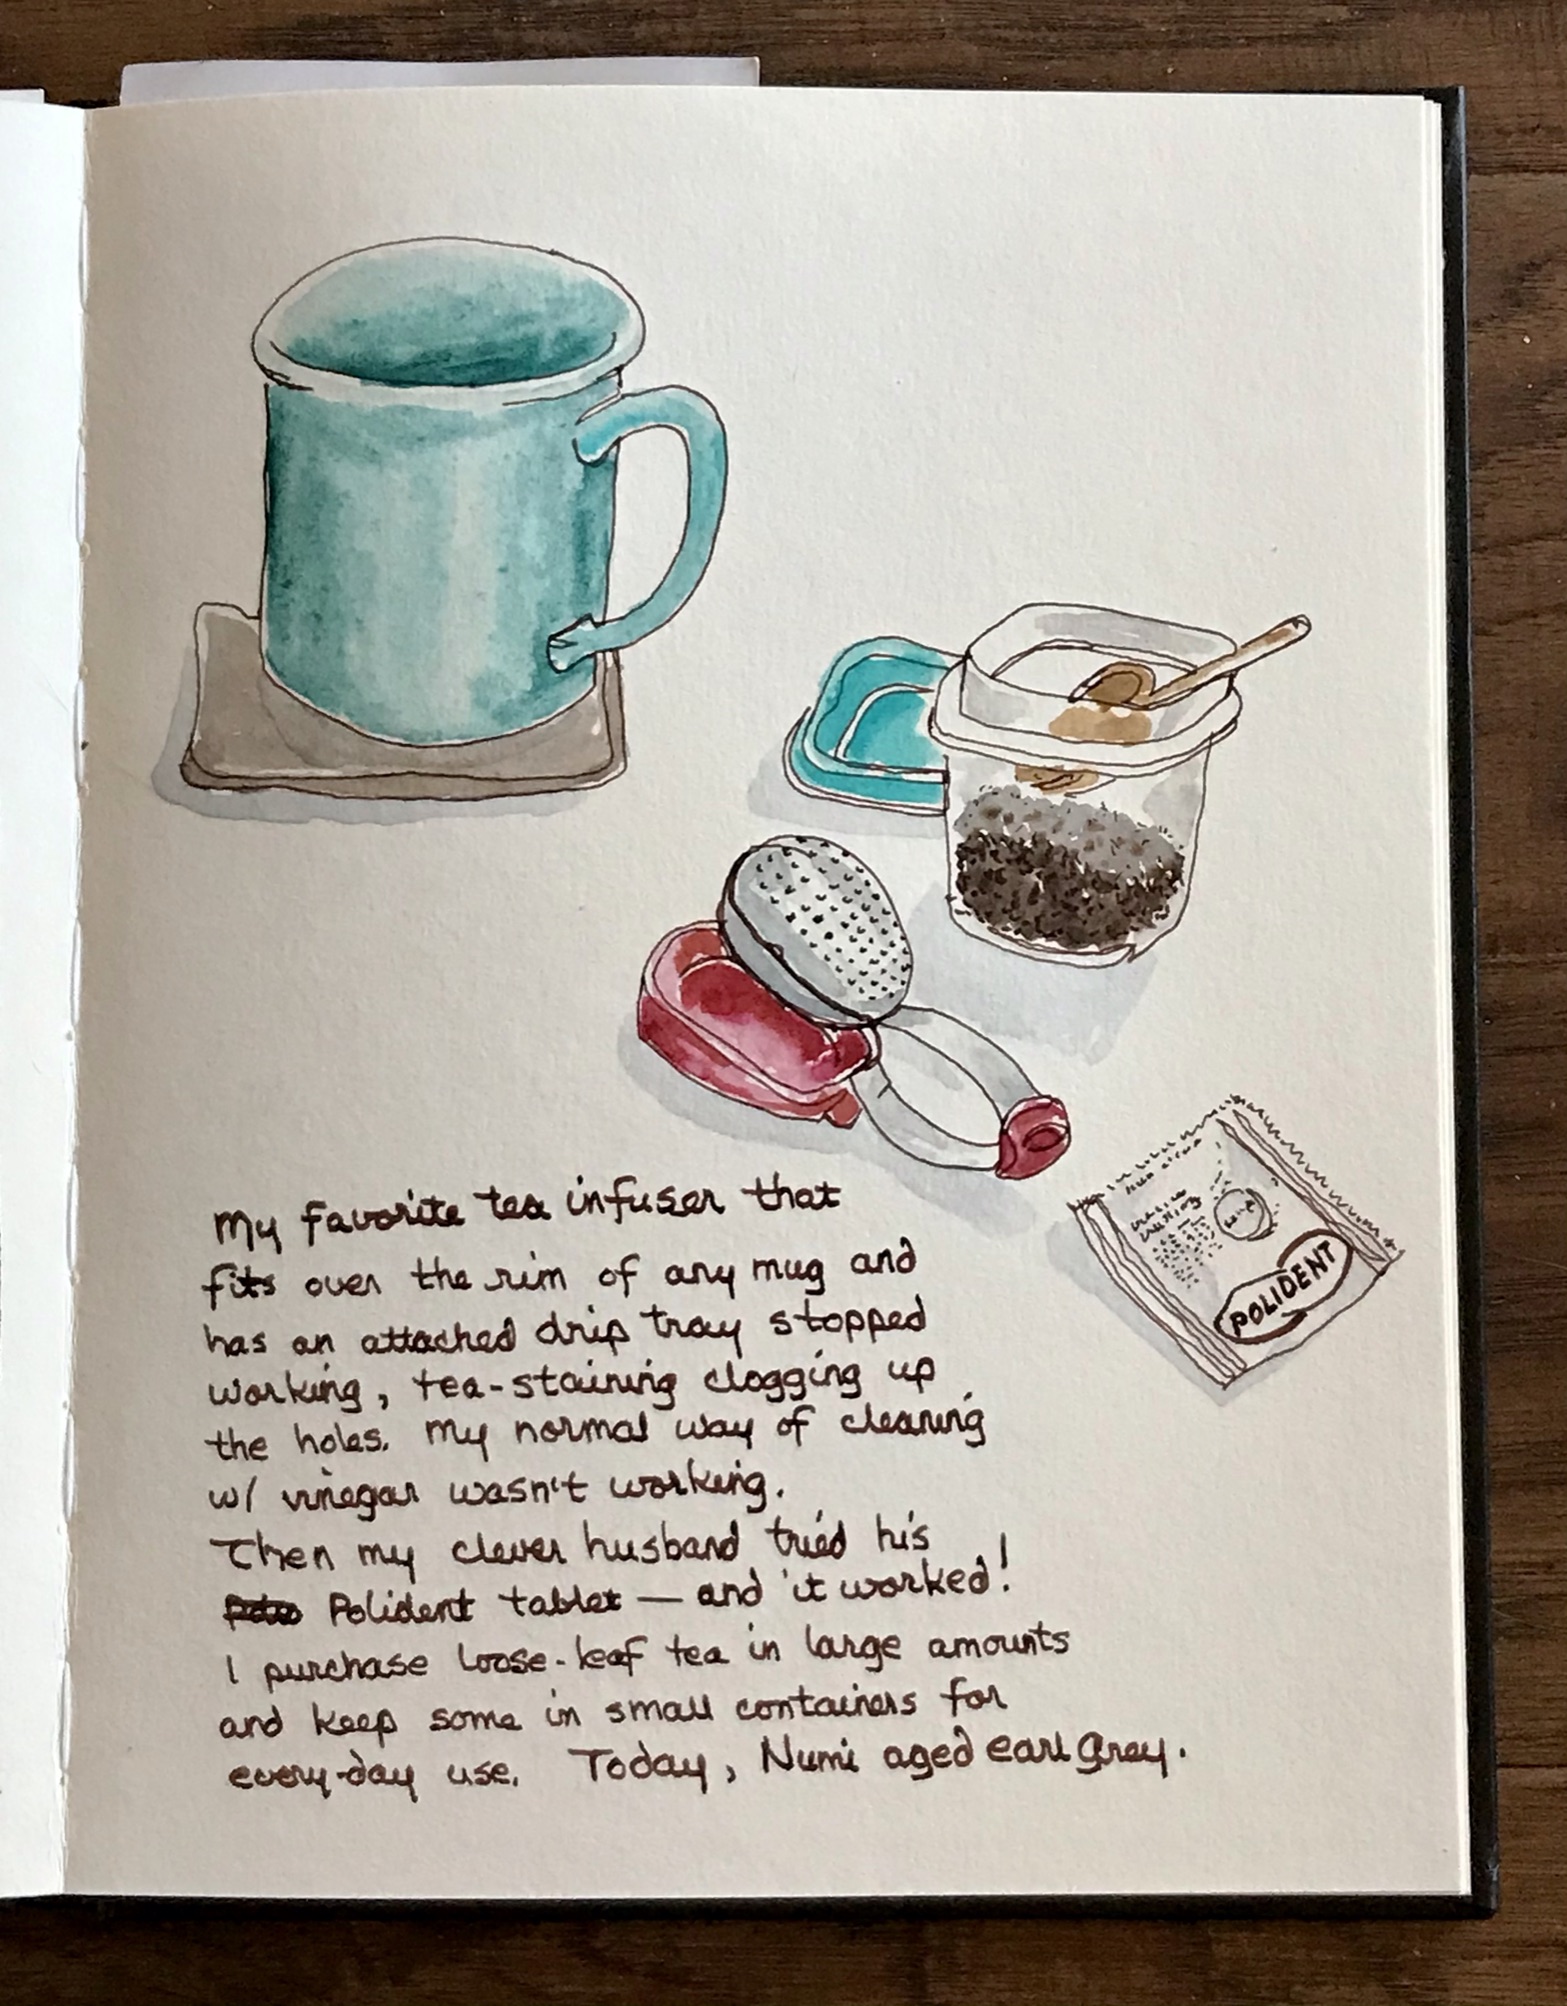 POLIDENT
My favorite tea infuser that
fits over the rim of any mug and
has an attached drip tray stopped
working, tea-staining clogging up
the holes. My normal way of cleaning
w/ vinegar wasn't working.
Then my clever husband tried his
Polident tablet — and it worked!
I purchase loose-leaf tea in large amounts
and keep some in small containers for
every-day use. Today, Numi aged earl grey.